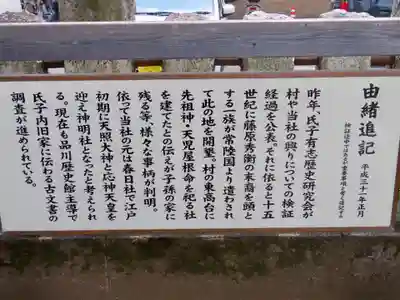 由緒追記 平成三十一年正月
検証途中ではあるが重要事項と考え追記する
昨年、氏子有志歴史研究会が
村や当社の興りについての検証
経過を公表。それに依ると十五
世紀に藤原秀衡の末裔を頭と
する一族が常陸国より遣わされ
て此の地を開墾。村の東高台に
先祖神・天児屋根命を祀る社
を建てたとの伝えが子孫の家に
残る等、様々な事柄が判明。
依って当社の元は春日社で江戸
初期に天照大神と応神天皇を
迎え神明社となったと考えられ
る。現在も品川歴史館主導で
氏子内旧家に伝わる古文書の
調査が進められている。